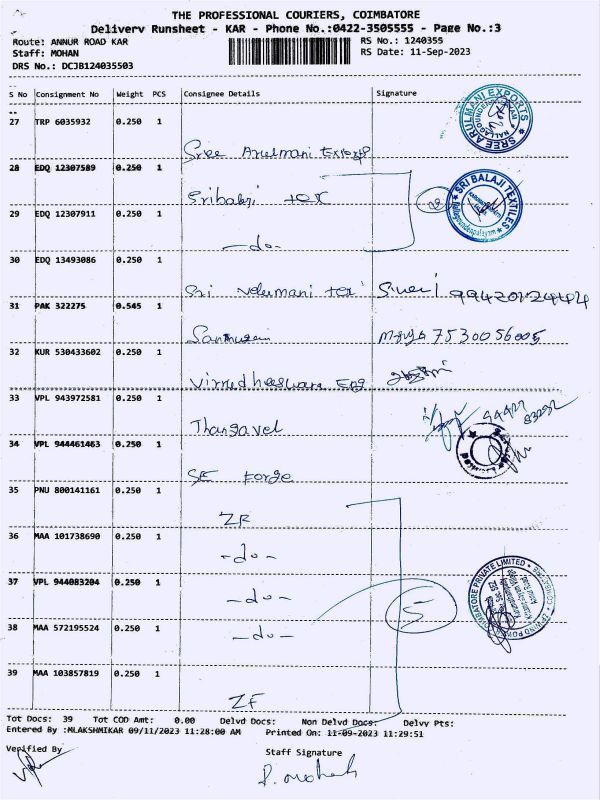 THE PROFESSIONAL COURIERS, COIMBATORE
Delivery Runsheet - KAR - Phone No.:0422-3505555 - Page No.:3
Route: ANNUR ROAD KAR RS No.: 1240355
Staff: MOHAN RS Date: 11-Sep-2023
DRS No.: DCJB124035503
S No Consignment No Weight PCS Consignee Details Signature
27 TRP 6035932 0.250 1
Sree Arulmani Exports
SREE ARULMANI EXPORTS
28 EDQ 12307589 0.250 1
Sribalaji tex
SRI BALAJI TEXTILES
29 EDQ 12307911 0.250 1
-do-
30 EDQ 13493086 0.250 1
Sri Velumani tex
31 PAK 322275 0.545 1
7530056005
32 KUR 530433602 0.250 1
Virudheeswara Eng
33 VPL 943972581 0.250 1
Thangavel
34 VPL 944461463 0.250 1
SE Forge
35 PNU 800141161 0.250 1
ZR
36 MAA 101738690 0.250 1
-do-
37 VPL 944083204 0.250 1
-do-
5
38 MAA 572195524 0.250 1
-do-
39 MAA 103857819 0.250 1
ZF
Tot Docs: 39 Tot COD Amt: 0.00 Delvd Docs: Non Delvd Docs: Delvy Pts:
Entered By :MLAKSHMIKAR 09/11/2023 11:28:00 AM Printed On: 11-09-2023 11:29:51
Verified By Staff Signature
P. Mohan